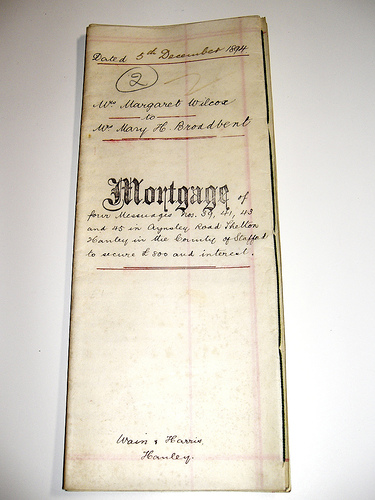 Dated 5th December 1894
2
Mrs Margaret Wilcox
to
Mrs Mary H. Broadbent
Mortgage of
four Messuages Nos. 39, 41, 43
and 45 in Aynsley Road Shelton
Hanley in the County of Stafford
to secure £800 and interest.
Wain & Harris,
Hanley.